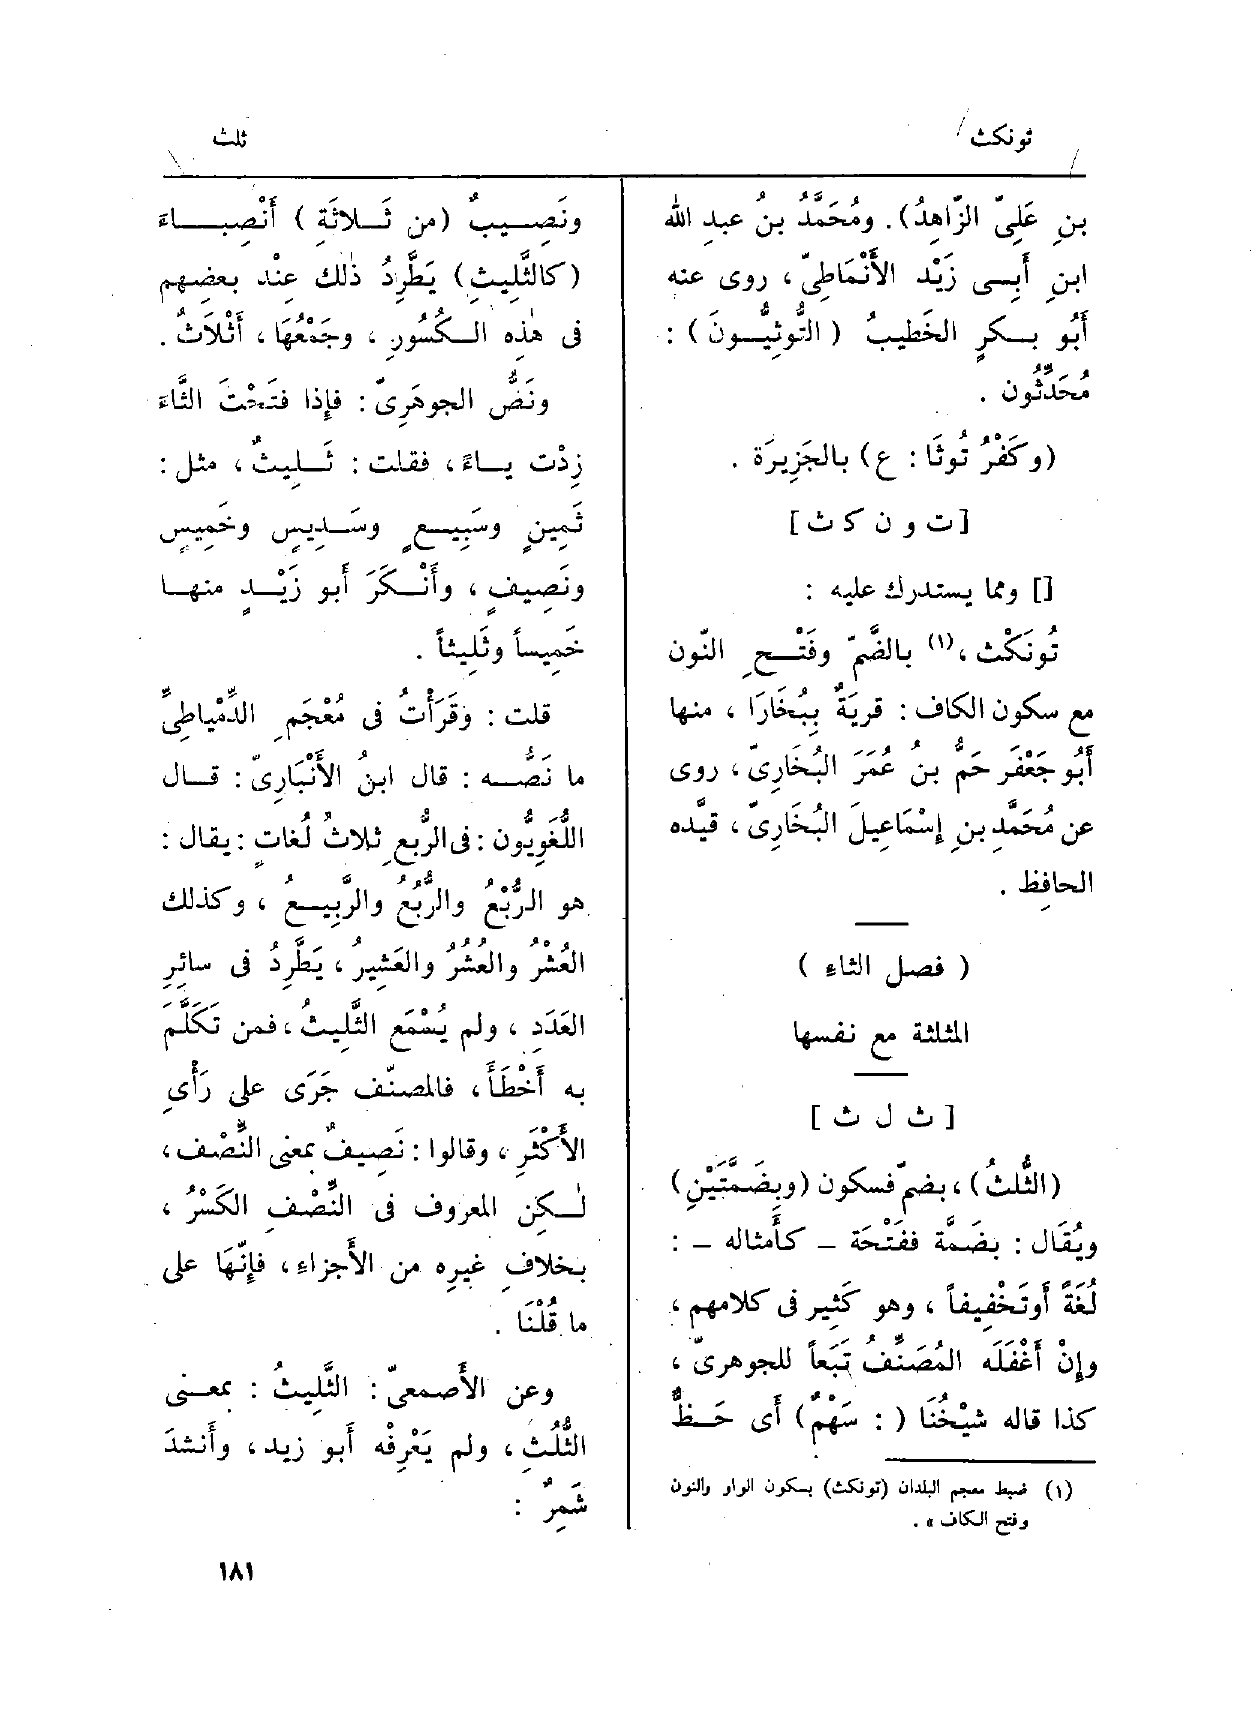 تونكث
ثلث
بنِ عَلِيّ الزّاهِدُ). ومُحَمَّدُ بنُ عبدِ الله
ابنِ أَبــى زَيْد الأَنْمَاطِىّ ، روى عنه
أَبُو بــكرٍ الخَطيبُ ( التُّوثِيُّــونَ ) :
مُحَدِّثُون .
(وكَفْرُ تُوثَا : ع) بالجَزِيرَة .
[ ت و ن ك ث ]
[] ومما يستدرك عليه :
تُونَكْث ،(١) بالضَّمّ وفَتْـــحِ النّون
مع سكون الكاف : قريَةٌ بِبُخَارَا ، منها
أَبُو جَعْفَر حَمُّ بنُ عُمَرَ البُخَارِىّ ، روى
عن مُحَمَّد بنِ إِسْمَاعِيلَ البُخَارِىّ ، قيَّده
الحافِظ .
( فصل الثاء )
المثلثة مع نفسها
[ ث ل ث ]
(الثُّلْثُ) ، بضمّ فسكون (وبِضَمَّتَيْنِ)
ويُقَال : بضَمَّة ففَتْحَة – كأَمثاله – :
لُغَةً أَوتَخْفِيفاً ، وهو كَثِير فى كلامهم ،
وإِنْ أَغْفَلَه المُصَنِّفُ تَبَعاً للجوهرىّ ،
كذا قاله شَيْخُنَا ( : سَهْمٌ) أَى حَــظٌّ
(١) ضبط معجم البلدان (تونكث) بسكون الواو والنون
وفتح الكاف » .
ونَصِـــيبٌ (من ثَــلاثَةِ ) أَنْصِبــــاءَ
(كالثَّلِيثِ) يَطَّرِدُ ذٰلك عنْد بعضِهم
فى هٰذه الــكُسُورِ ، وجَمْعُهَا ، أَثْلاثٌ .
ونَصُّ الجوهَرِىّ : فإِذا فتَحْتَ الثَّاءَ
زِدْت يــاءً ، فقلت : ثَــلِيثٌ ، مثل :
ثَمِينٍ وسَبِيــعٍ وسَــدِيسٍ وخَمِيسٍ
ونَصِيفٍ ، وأَنْــكَرَ أَبو زَيْــدٍ منهــا
خَمِيساً وثَلِيثاً .
قلت : وقَرَأْتُ فى مُعْجَمِ الدِّمْياطِىِّ
ما نَصُّــه : قال ابنُ الأَنْبَارِىّ : قــال
اللُّغَوِيُّون : فى الرُّبعِ ثلاثُ لُغَاتٍ : يقال :
هو الرُّبْعُ والرُّبُعُ والرَّبِيــعُ ، وكذلك
العُشْرُ والعُشُرُ والعَشِيرُ ، يَطَّرِدُ فى سائِرِ
العَدَدِ ، ولم يُسْمَعِ الثَّلِيثُ ، فمن تَكَلَّمَ
به أَخْطَأَ ، فالمصنّف جَرَى على رَأْىِ
الأَكْثَرِ ، وقالوا : نَصِيفٌ بمعنى النِّصْف ،
لٰــكِن المعروف فى النِّصْفِ الكَسْرُ ،
بخلافِ غيرِه من الأَجزاءِ ، فإِنّهَا على
ما قُلْنَا .
وعن الأَصمعىّ : الثَّلِيثُ : بمعــنى
الثُّلُثِ ، ولم يَعْرِفْه أَبو زيد ، وأَنشدَ
شَمِرٌ :
١٨١